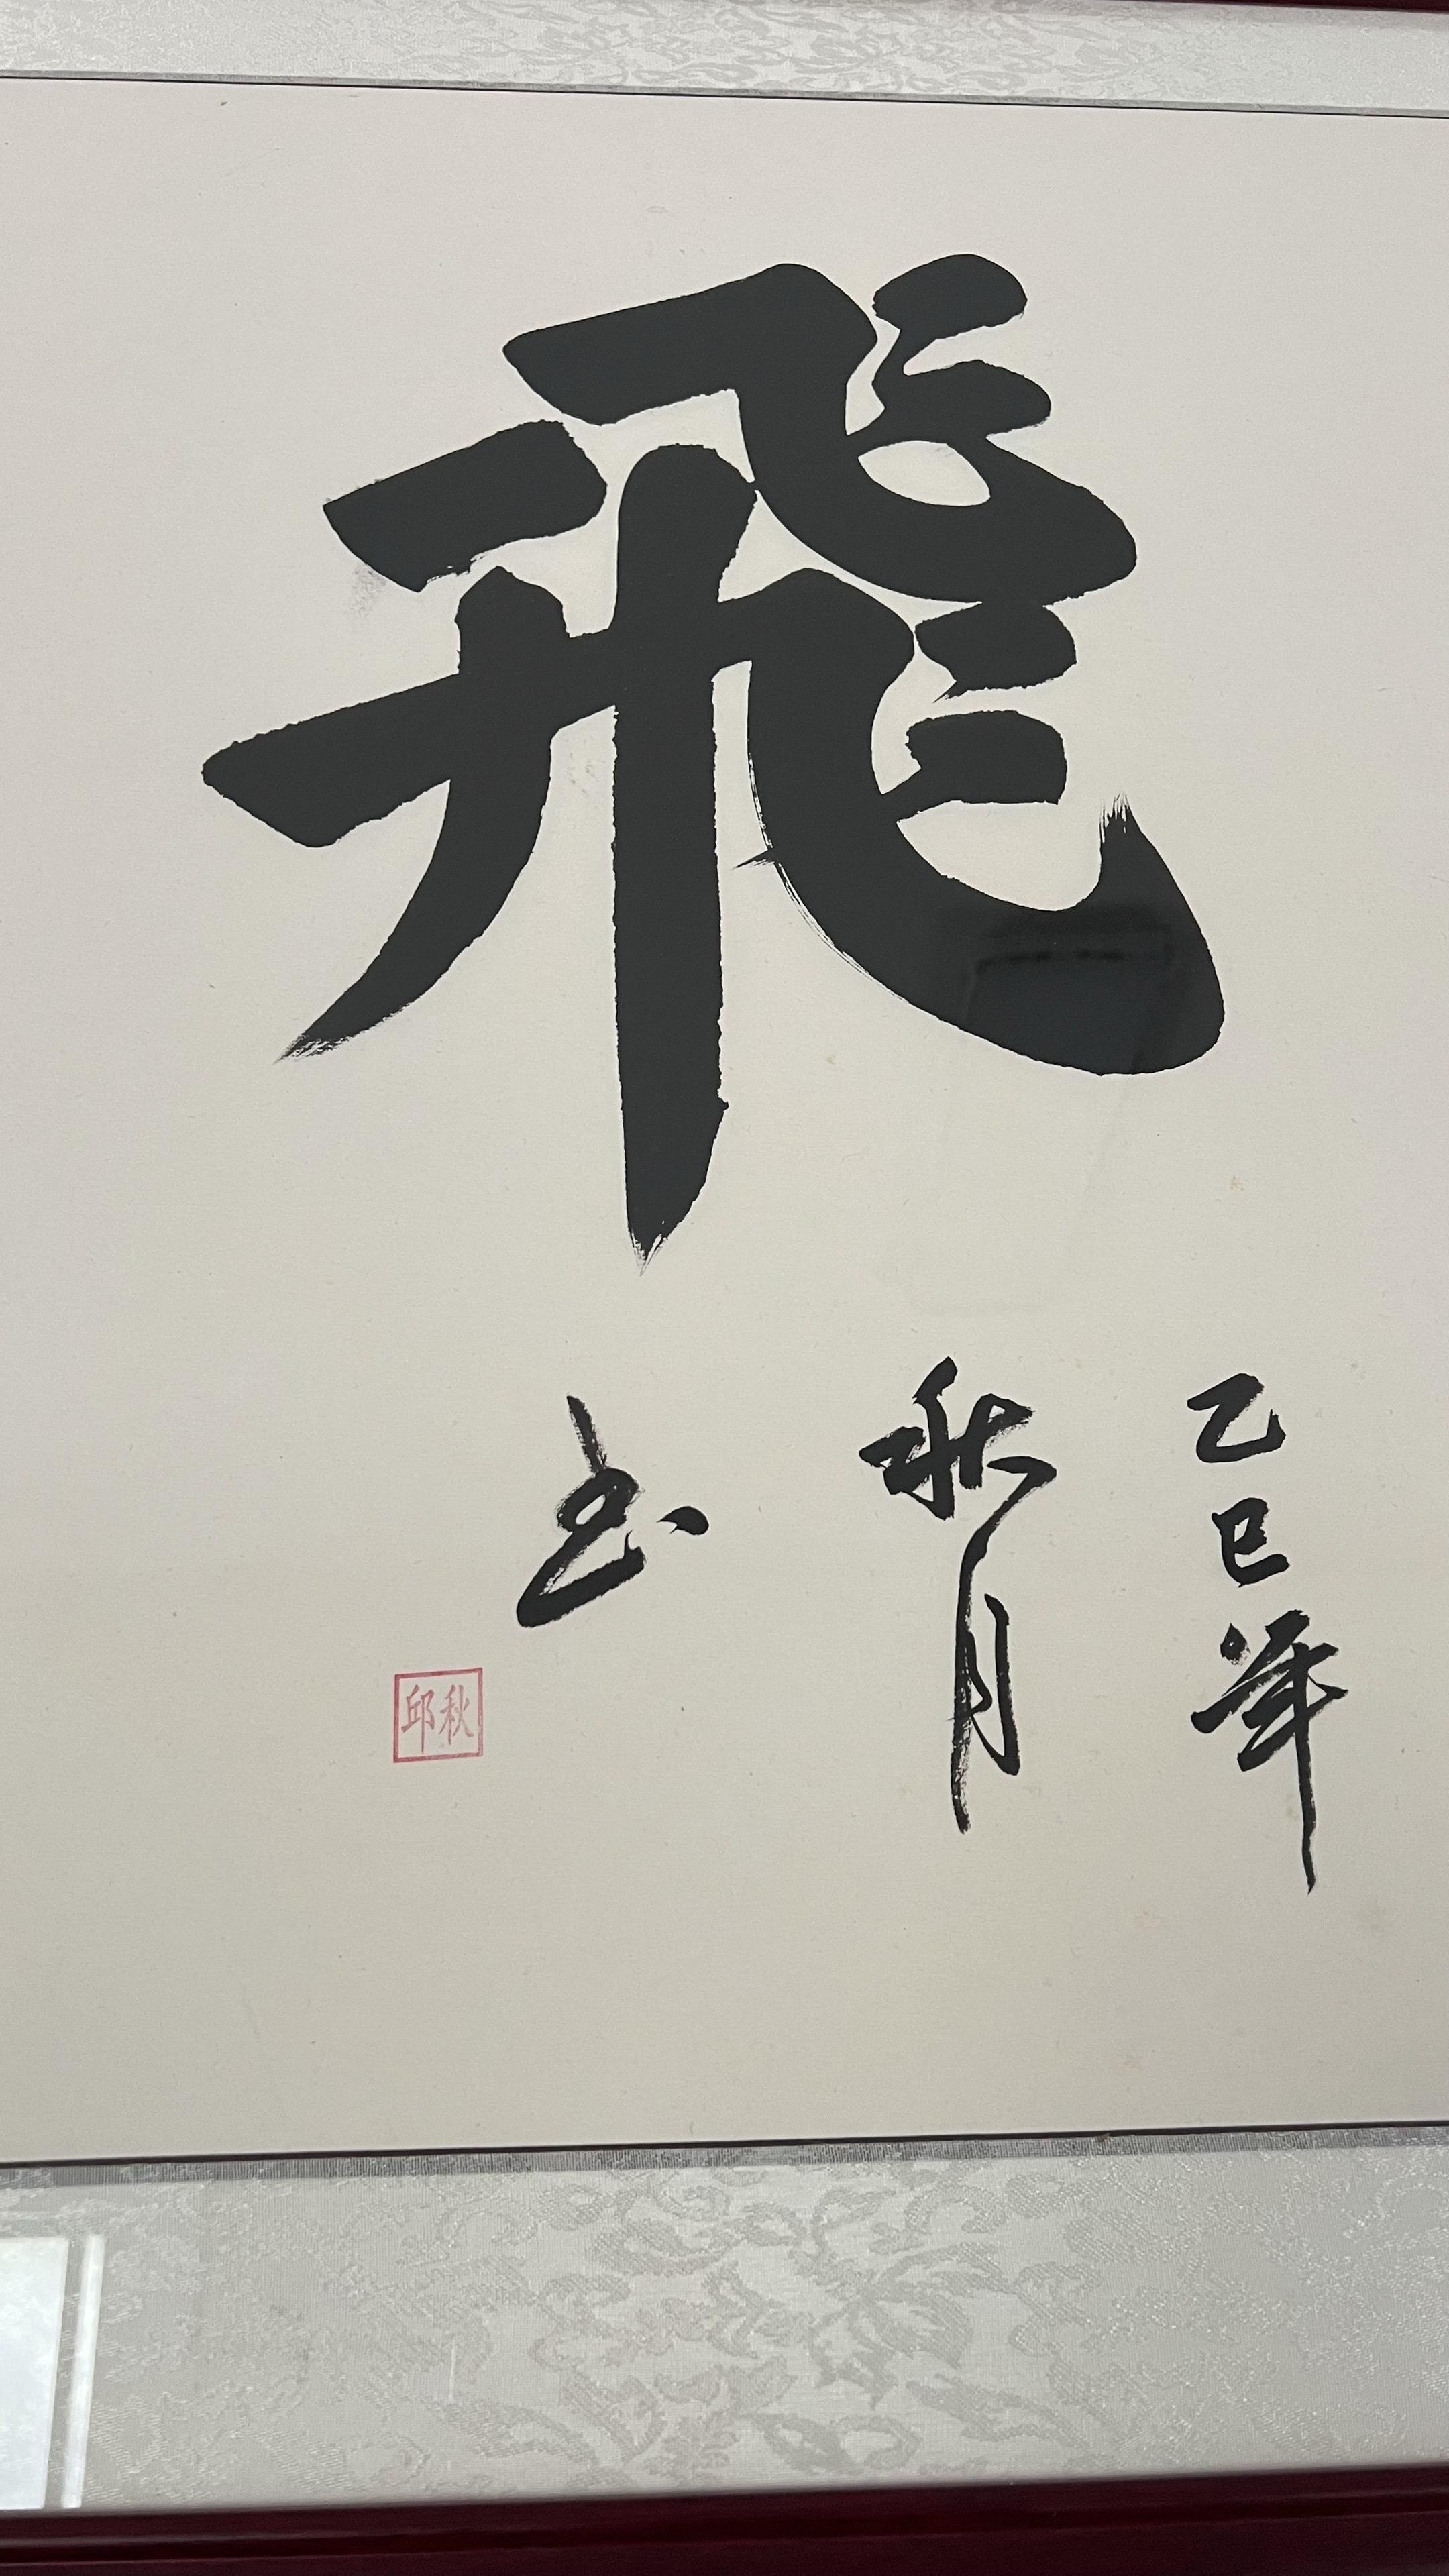 飛
乙巳年
秋月
书
邱秋